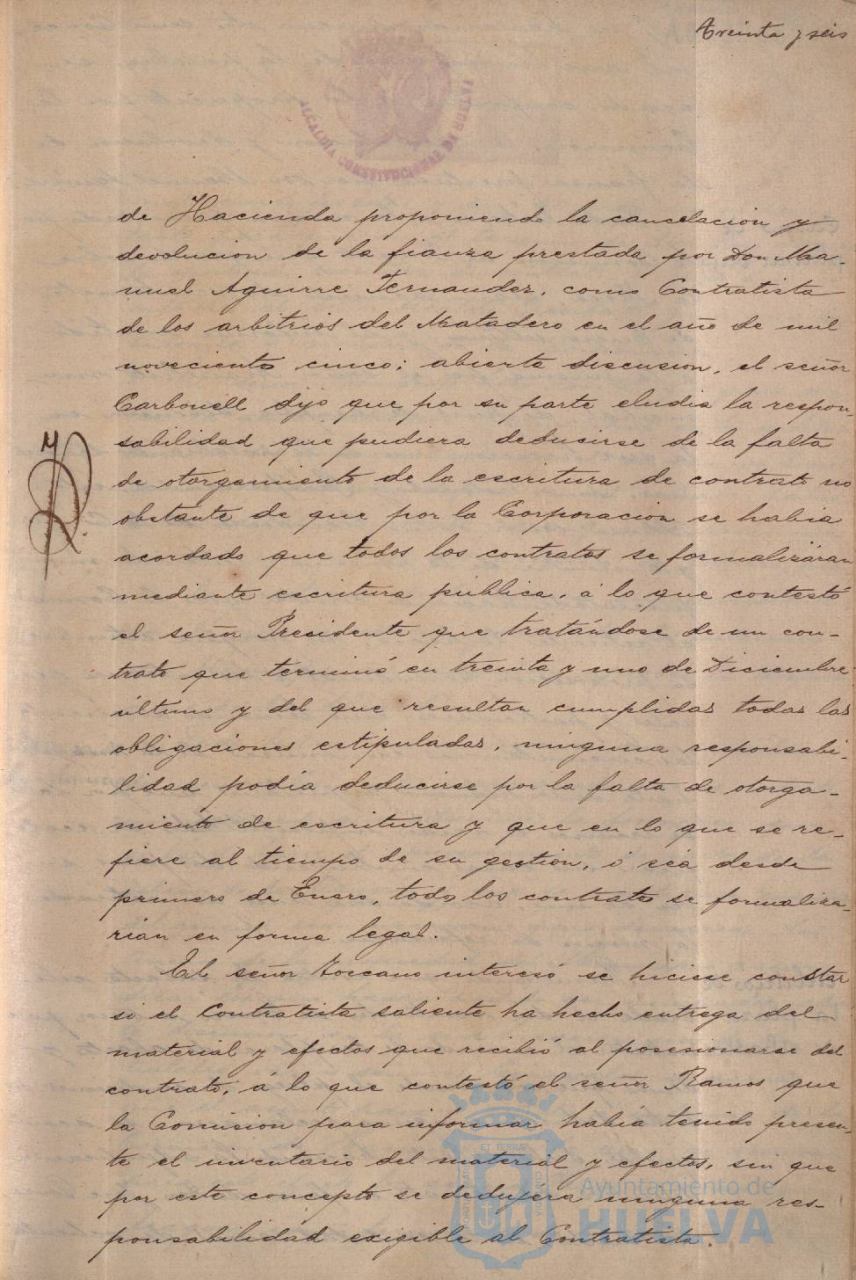 Treinta y seis
ALCALDIA CONSTITUCIONAL DE HUELVA
de Hacienda proponiendo la cancelacion y
devolucion de la fianza prestada por Don Ma-
nuel Aguirre Fernandez, como Contratista
de los arbitrios del Matadero en el año de mil
novecientos cinco; abierta discusion, el señor
Carbonell dijo que por su parte eludia la respon-
sabilidad que pudiera deducirse de la falta
de otorgamiento de la escritura de contrato no
obstante de que por la Corporacion se habia
acordado que todos los contratos se formalizáran
mediante escritura pública, á lo que contestó
el señor Presidente que tratándose de un con-
trato que terminó en treinta y uno de Diciembre
último y del que resultan cumplidas todas las
obligaciones estipuladas, ninguna responsabi-
lidad podia deducirse por la falta de otorga-
miento de escritura y que en lo que se re-
fiere al tiempo de su gestión, ó sea desde
primero de Enero, todos los contratos se formaliza-
rían en forma legal.
El señor Toscano interesó se hiciese constar
si el Contratista saliente ha hecho entrega del
material y efectos que recibió al posesionarse del
contrato, á lo que contestó el señor Ramos que
la Comision para informar había tenido presen-
te el inventario del material y efectos, sin que
por este concepto se dedujera ninguna res-
ponsabilidad exigible al Contratista.
Ayuntamiento de
HUELVA